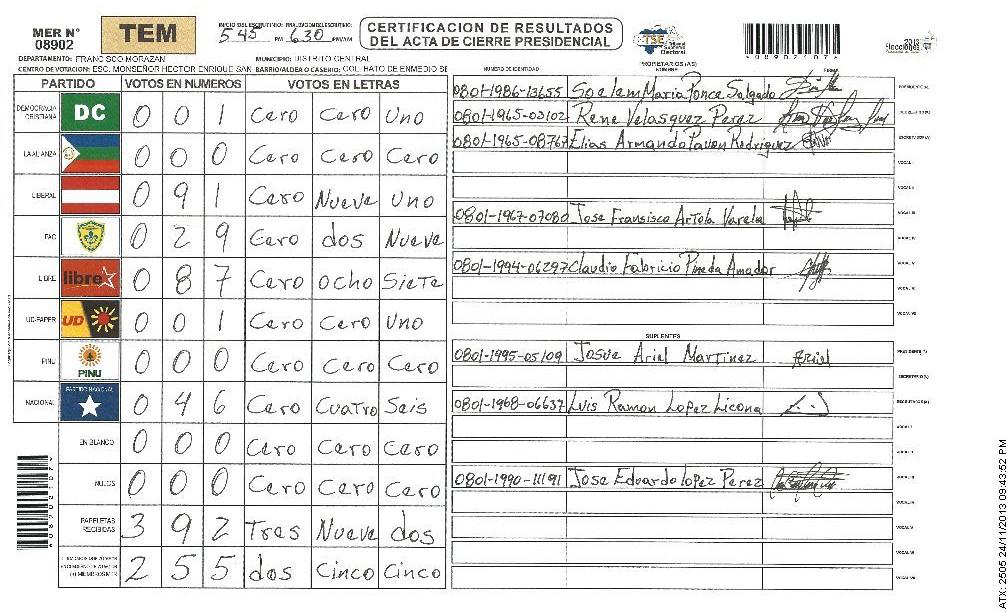 MER N° 08902
TEM
INICIO DEL ESCRUTINIO: 5 45 PM FINALIZACION DEL ESCRUTINIO: 6 30 PM/AM
CERTIFICACION DE RESULTADOS
DEL ACTA DE CIERRE PRESIDENCIAL
TSE
Electoral
2013
Elecciones
DEPARTAMENTO: FRANCISCO MORAZAN MUNICIPIO: DISTRITO CENTRAL
CENTRO DE VOTACION: ESC. MONSEÑOR HECTOR ENRIQUE SAN BARRIO/ALDEA O CASERIO: COL. HATO DE ENMEDIO SE
PARTIDO VOTOS EN NUMEROS VOTOS EN LETRAS
DEMOCRACIA CRISTIANA DC 0 0 1 Cero Cero Uno
LA ALIANZA 0 0 0 Cero Cero Cero
LIBERAL 0 9 1 Cero Nueve Uno
PAC 0 2 9 Cero dos Nueve
LIBRE libre 0 8 7 Cero ocho Siete
UD-FAPER UD 0 0 1 Cero Cero Uno
PINU PINU 0 0 0 Cero Cero Cero
NACIONAL PARTIDO NACIONAL 0 4 6 Cero Cuatro Seis
EN BLANCO 0 0 0 Cero Cero Cero
NULOS 0 0 0 Cero Cero Cero
PAPELETAS RECIBIDAS 3 9 2 Tres Nueve dos
2 5 5 dos Cinco Cinco
NUMERO DE IDENTIDAD PROPIETARIOS (AS) NOMBRE FIRMA
0801-1986-13655 Soelem Maria Ponce Salgado
0801-1965-03102 Rene Velasquez Perez
0801-1965-08767 Elias Armando Pavon Rodriguez
VOCAL I
VOCAL II
0801-1967-07080 Jose Fransisco Artola Varela VOCAL III
VOCAL IV
0801-1994-06297 Claudio Fabricio Pineda Amador VOCAL V
VOCAL VI
VOCAL VII
SUPLENTES
0801-1995-05109 Josue Ariel Martinez Ariel
0801-1968-06637 Luis Ramon Lopez Licona
0801-1990-11191 Jose Eduardo Lopez Perez
ATX: 2505 24/11/2013 09:43:52 PM